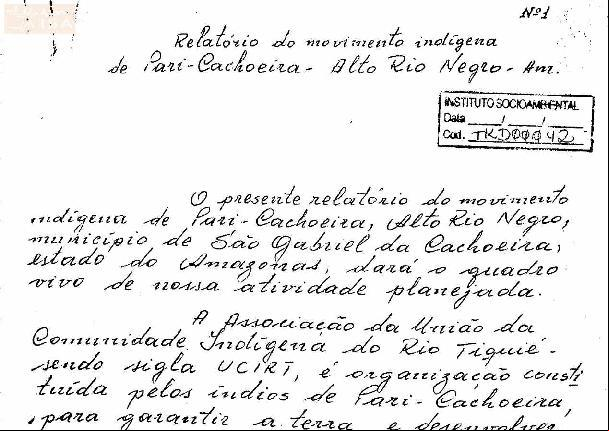 Nº1
Relatório do movimento indígena
de Pari-Cachoeira - Alto Rio Negro - Am.
INSTITUTO SOCIOAMBIENTAL
Data ___/___/___
Cod. TKD00042
O presente relatório do movimento
indígena de Pari-Cachoeira, Alto Rio Negro,
município de São Gabriel da Cachoeira,
estado do Amazonas, dará o quadro
vivo de nossa atividade planejada.
A Associação da União da
Comunidade Indígena do Rio Tiquié -
sendo sigla UCIRT, é organização consti
tuída pelos índios de Pari-Cachoeira,
para garantir a terra e desenvolver